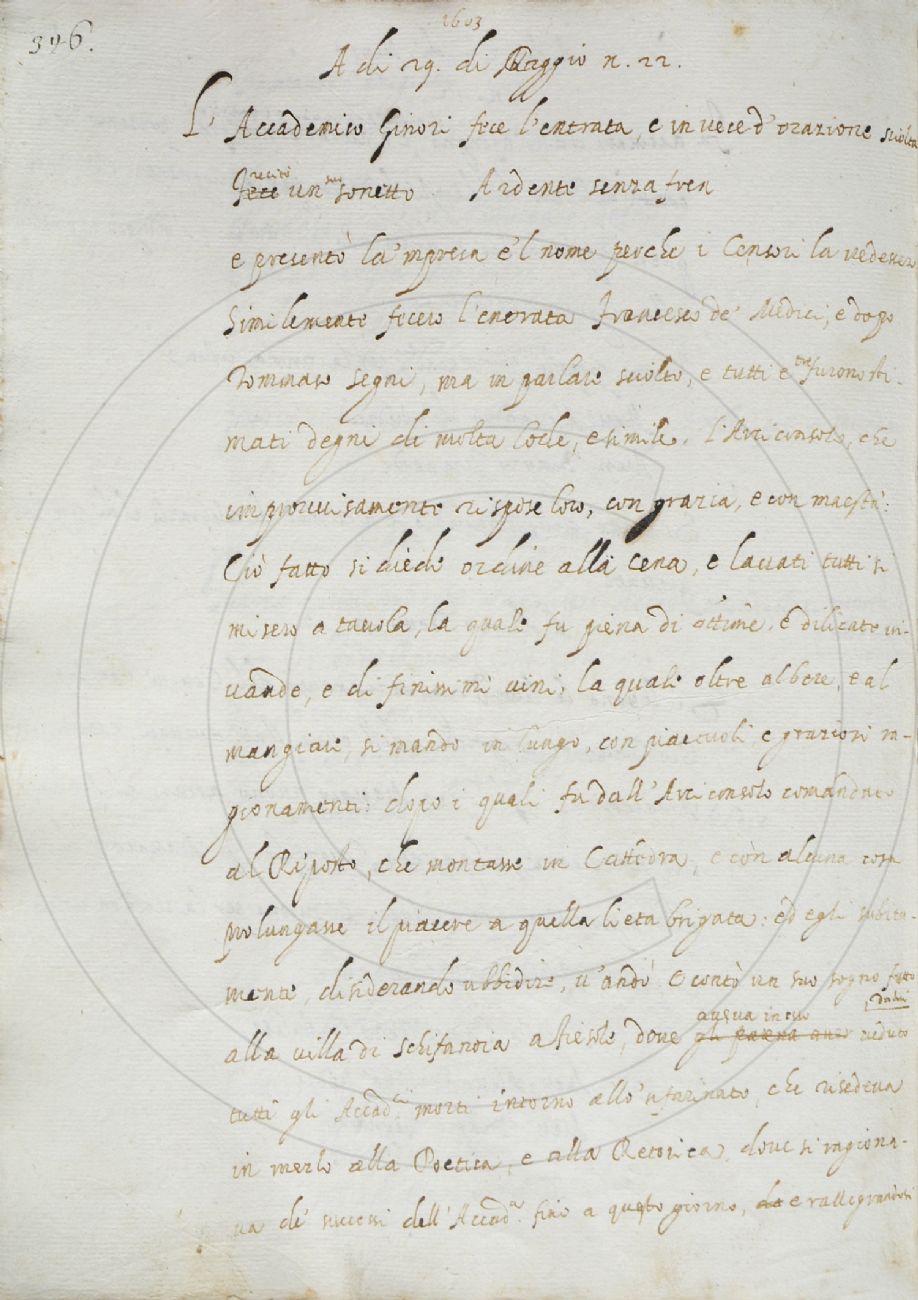 1603
346.
A di 29. di Maggio n. 22.
L' Accademico Ginori fece l'entrata, e in vece d'orazione sciolta
fece recitò un suo sonetto Ardente senza fren
e presentò la 'mpresa e 'l nome perche i Censori la vedesser
Similemente fecero l'entrata Francesco de' Medici, e dopo
Tommaso Segni, ma in parlare sciolto, e tutti e tre furono sti-
mati degni di molta lode, e simile l'Arciconsolo, che
improvvisamente rispose loro, con grazia, e con maestà:
Ciò fatto si diede ordine alla cena, e lavati tutti si
misero a tavola, la quale fu piena di ottime, e dilicate vi-
vande, e di finissimi vini; la quale oltre al bere, e al
mangiare, si mandò in lungo, con piacevoli e graziosi ra-
gionamenti: dopo i quali fu dall'Arciconsolo comandato
al Riposto, che montasse in Cattedra, e con alcuna cosa
prolungasse il piacere a quella lieta brigata: ed egli subita-
mente, disiderando ubbidire, v'andò e contò un suo sogno fatto
alla villa di Schifanoia a Fiesole, dove gli pareva aver aveva in esso veduto
tutti gli Accad.ci morti intorno allo 'nfarinato, che risedeva
in mezzo alla Poetica, e alla Retorica, dove si ragiona-
va de' successi dell'Accad.a fino a questo giorno, e rallegrandosi